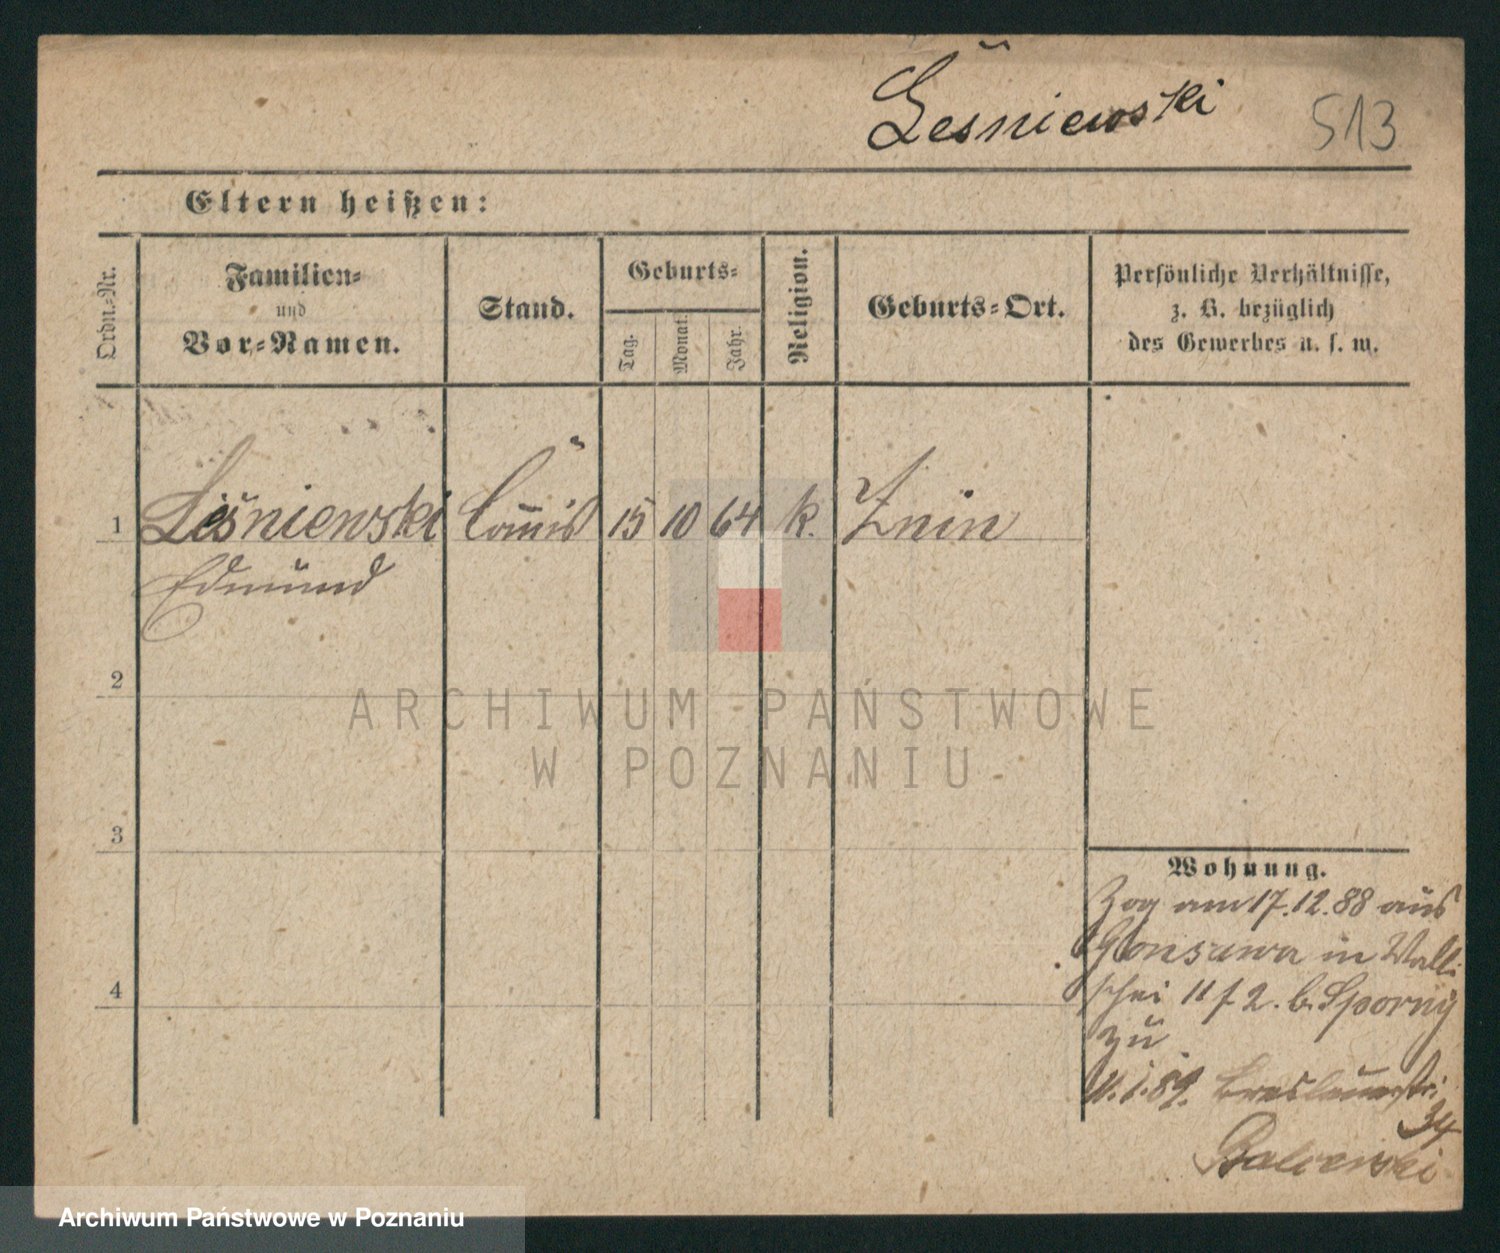 Leśniewski 513
Eltern heißen:
Ordn.-Nr.
Familien-
und
Vor-Namen.
Stand.
Geburts-
Tag.
Monat.
Jahr.
Religion.
Geburts-Ort.
Persönliche Verhältnisse,
z. B. bezüglich
des Gewerbes u. s. w.
1 Leśniewski Commis 15 10 64 k. Znin
Edmund
2
3
4
Wohnung.
Zog am 17.12.88 aus
Gonsawa in Walli
schei 11 f 2. b. Sporny
zu
11.1.89. Breslauerstr.
34
ARCHIWUM PAŃSTWOWE
W POZNANIU
Archiwum Państwowe w Poznaniu